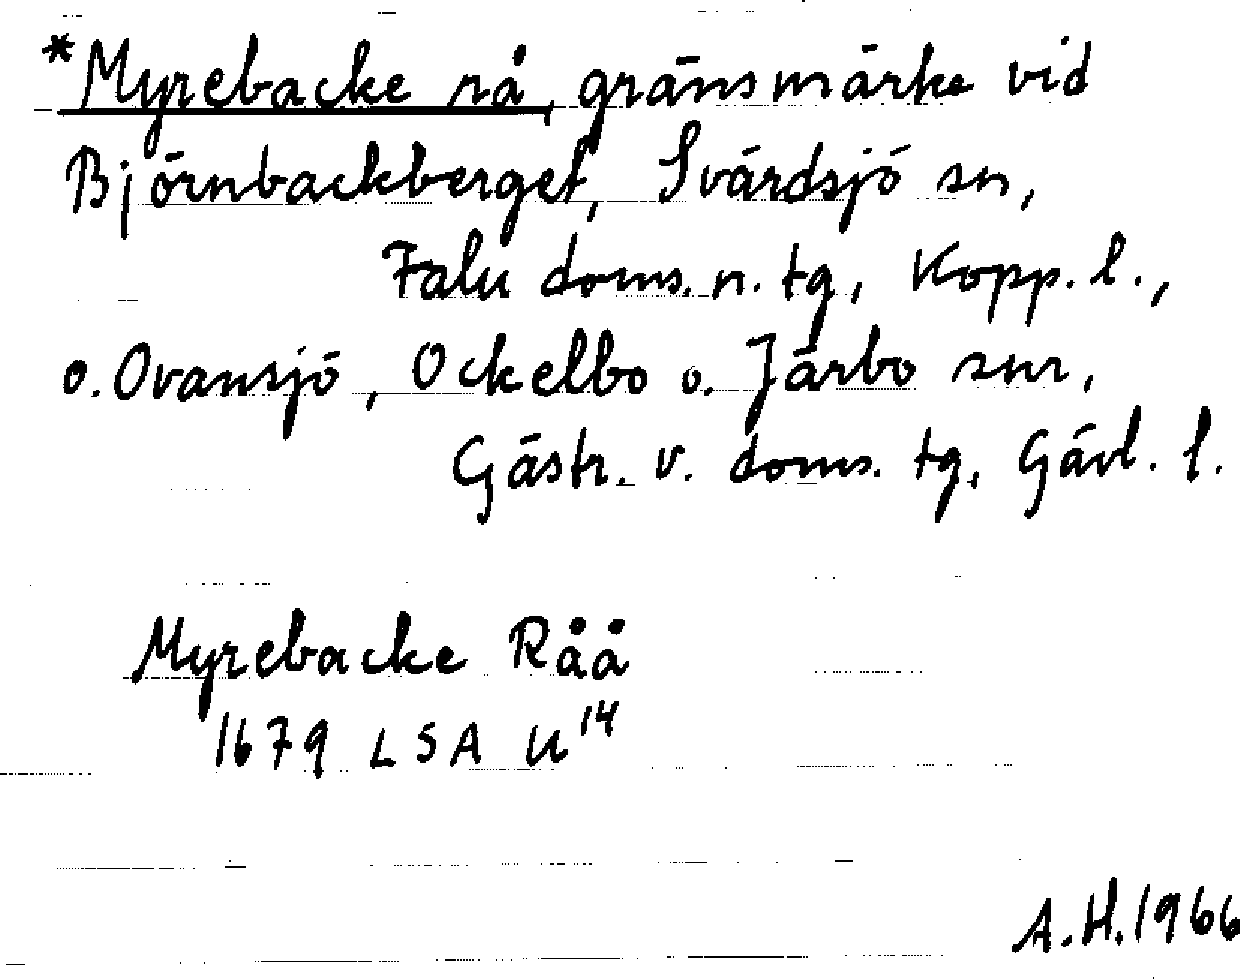 *Myrebacke rå, gränsmärke vid
Björnbackberget, Svärdsjö sn,
Falu doms. n. tg, Kopp. l.,
o. Ovansjö, Ockelbo o. Järbo snr,
Gästr. v. doms. tg, Gävl. l.
Myrebacke Råå
1679 LSA U¹⁴
A.H. 1966